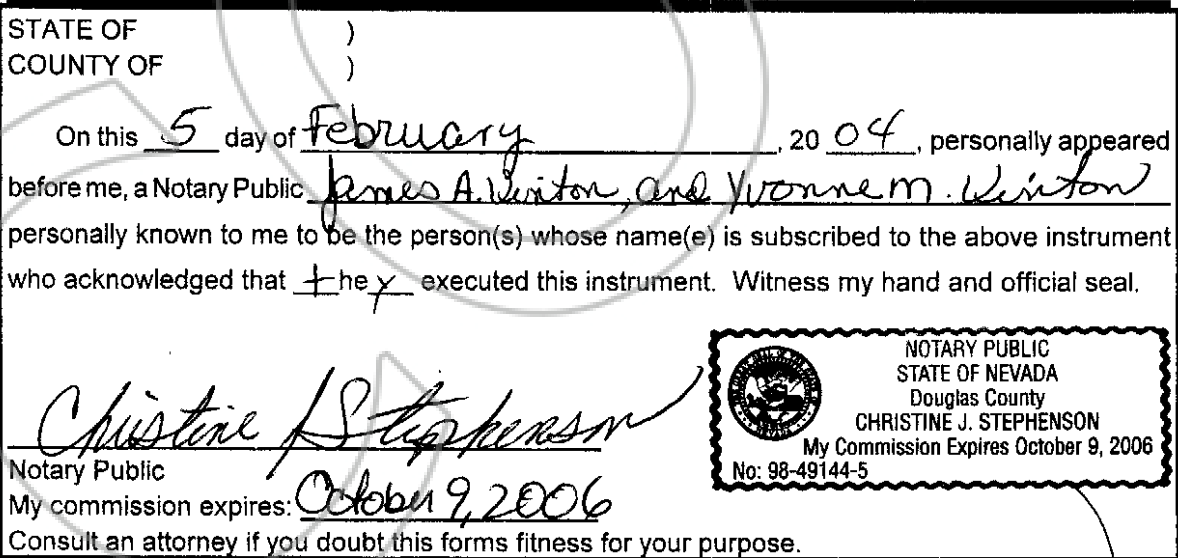 STATE OF )
COUNTY OF )
On this 5 day of February, 20 04, personally appeared
before me, a Notary Public James A. Kinton, and Yvonne M. Kinton
personally known to me to be the person(s) whose name(e) is subscribed to the above instrument
who acknowledged that they executed this instrument. Witness my hand and official seal.
Christine J Stephenson
Notary Public
My commission expires: October 9, 2006
Consult an attorney if you doubt this forms fitness for your purpose.
NOTARY PUBLIC
STATE OF NEVADA
Douglas County
CHRISTINE J. STEPHENSON
My Commission Expires October 9, 2006
No: 98-49144-5